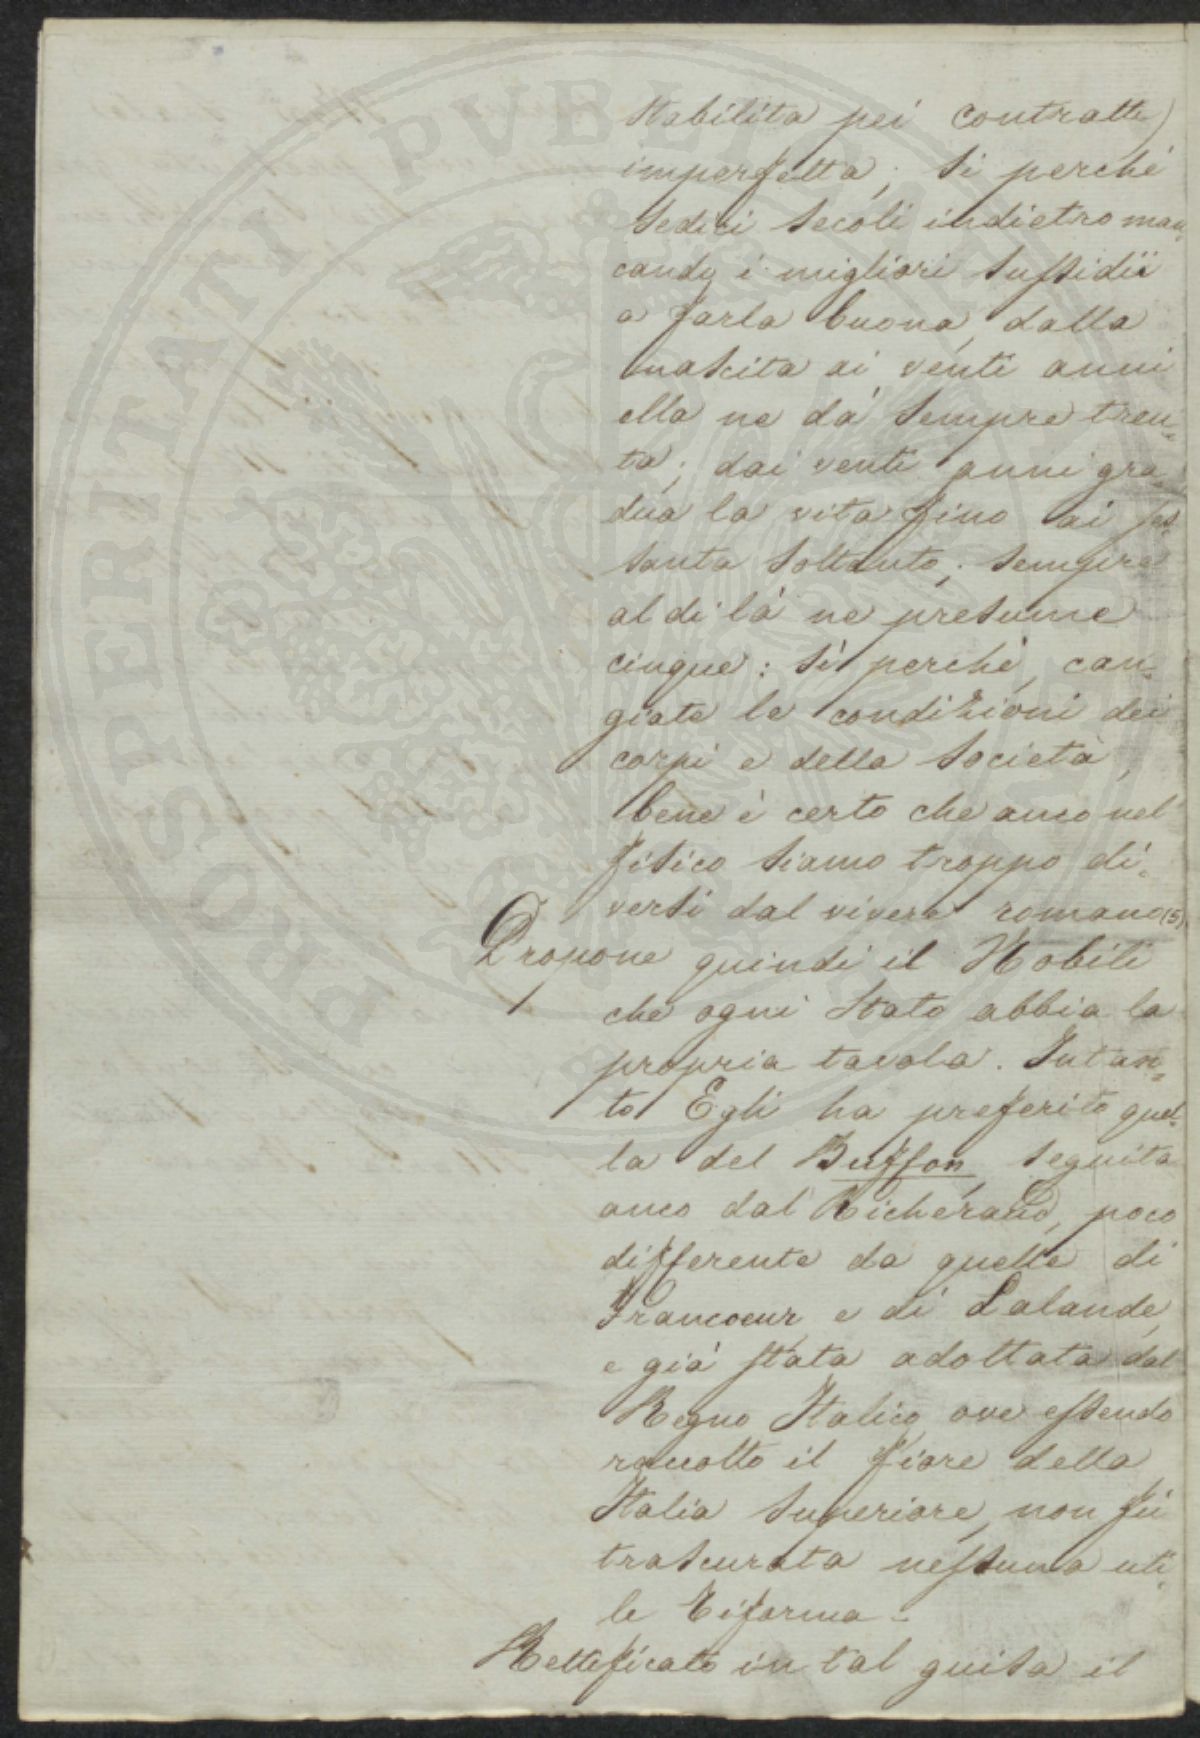 stabilita pei contratti)
imperfetta; si perchè
sedici secoli indietro man-
cando i migliori sussidii
a farla buona, dalla
nascita ai venti anni
ella ne dà sempre tren-
ta; dai venti anni gra-
dua la vita fino ai ses-
santa soltanto; sempre
al di là ne presume
cinque: sì perchè, can-
giate le condizioni dei
corpi e della società,
bene è certo che anco nel
fisico siamo troppo di-
versi dal vivere romano (5)
Propone quindi il Nobili
che ogni Stato abbia la
propria tavola. Intan-
to Egli ha preferito quel-
la del Buffon, seguita
anco dal Richerand, poco
differente da quelle di
Francoeur, e di Lalande,
e già stata adottata dal
Regno Italico, ove essendo
raccolto il fiore della
Italia superiore, non fù
trascurata nessuna uti-
le riforma.
Rettificato in tal guisa il
PROSPERITATI PVBLICAE